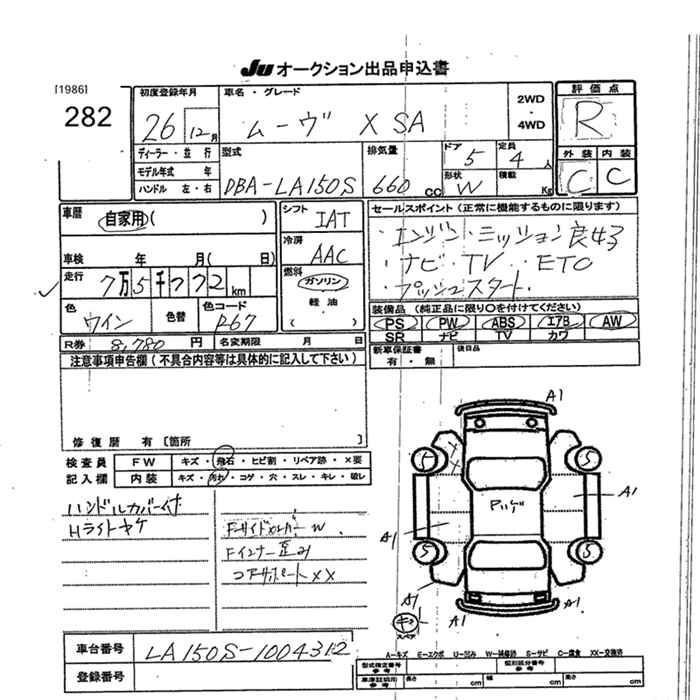 JU オークション出品申込書
[1986]
282
初度登録年月
26 12月
車名・グレード
ムーヴ X SA
2WD
・
4WD
評価点
R
外装 内装
C C
ディーラー・並行
モデル年式 年
ハンドル 左・右
型式
DBA-LA150S
排気量
660 cc
ドア
5
定員
4 人
形状
W
積載
Kg
車歴 自家用 ( )
車検 年 月 ( 日)
走行 7万5千772 km
色 ワイン 色替 色コード P67
R券 8,780 円 名変期限 月 日
シフト IAT
冷房 AAC
燃料 ガソリン
軽油
( )
セールスポイント (正常に機能するものに限ります)
・エンジン・ミッション良好
・ナビ・TV ETC
・プッシュスタート
装備品 (純正品に限り○を付けてください)
PS PW ABS エアB AW
SR ナビ TV カワ
新車保証書 有・無 後日品
注意事項申告欄 (不具合内容等は具体的に記入して下さい)
修復歴 有 [箇所 ]
検査員 FW キズ・飛石・ヒビ割・リペア跡・×要
記入欄 内装 キズ・汚れ・コゲ・穴・スレ・キレ・破レ
ハンドルカバー付
Hライトキケ
Fインナー歪み
コアサポートXX
A1
5 5
A1
A1
5 5
A1
A1
A1
キ
スペア
車台番号 LA150S-1004312
登録番号
A-キズ E-エクボ U-凹ミ W-補修跡 S-サビ C-腐食 XX-交換済
型式指定番号 参考
類別区分番号 参考
長さ cm
幅 cm
高さ cm